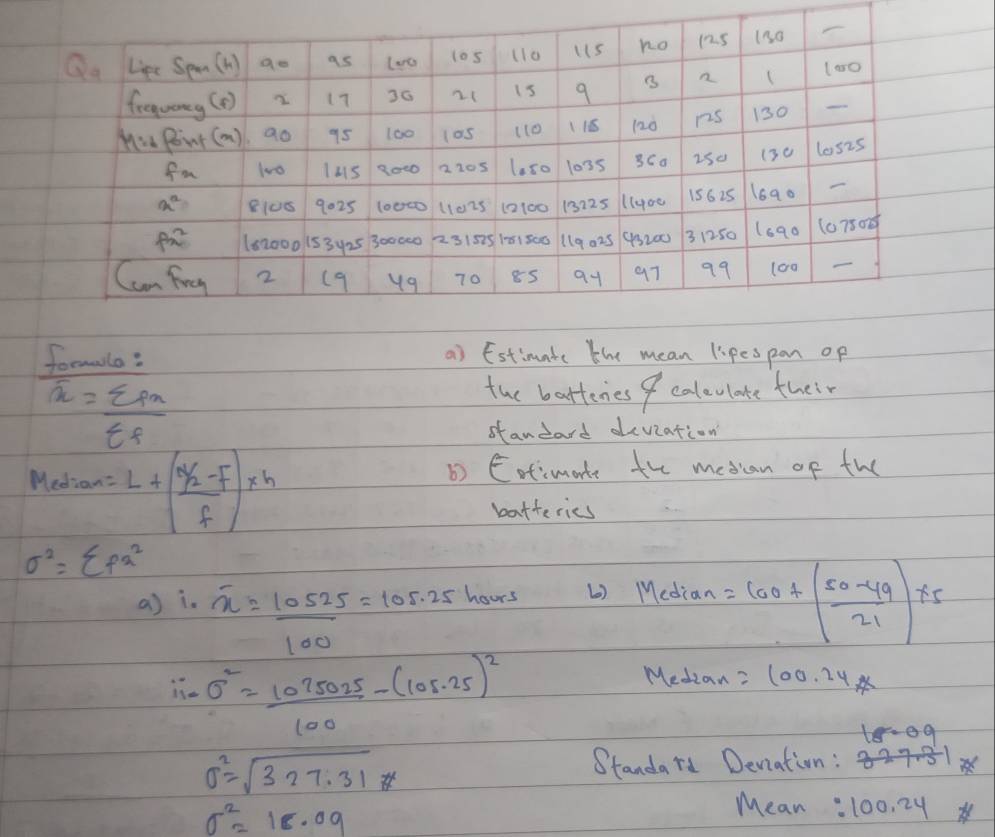 Q9 Life Span (h) 90 95 100 105 110 115 120 125 130 —
frequency (f) 2 17 30 21 15 9 3 2 1 100
Mid Point (x) 90 95 100 105 110 115 120 125 130 —
fx 1615 3000 2205 1650 1035 360 250 130 10525
x² 8100 9025 10000 11025 12100 13225 11400 15625 1690 —
fx² 162000 153425 300000 231525 181500 119025 43200 31250 1690 1075025
Cum Freq 2 19 49 70 85 94 97 99 100 —
formula:
x̄ = Σfx / Σf
Median = L + (n/2 - F / f) × h
σ² = Σfx²
a) Estimate the mean lifespan of
the batteries & calculate their
standard deviation
b) Estimate the median of the
batteries
a) i. x̄ = 10525 / 100 = 105.25 hours
ii. σ² = 1075025 / 100 - (105.25)²
σ² = √327.31
σ² = 18.09
b) Median = 100 + (50-49 / 21) × 5
Median = 100.24
Standard Deviation: 18.09
Mean : 100.24